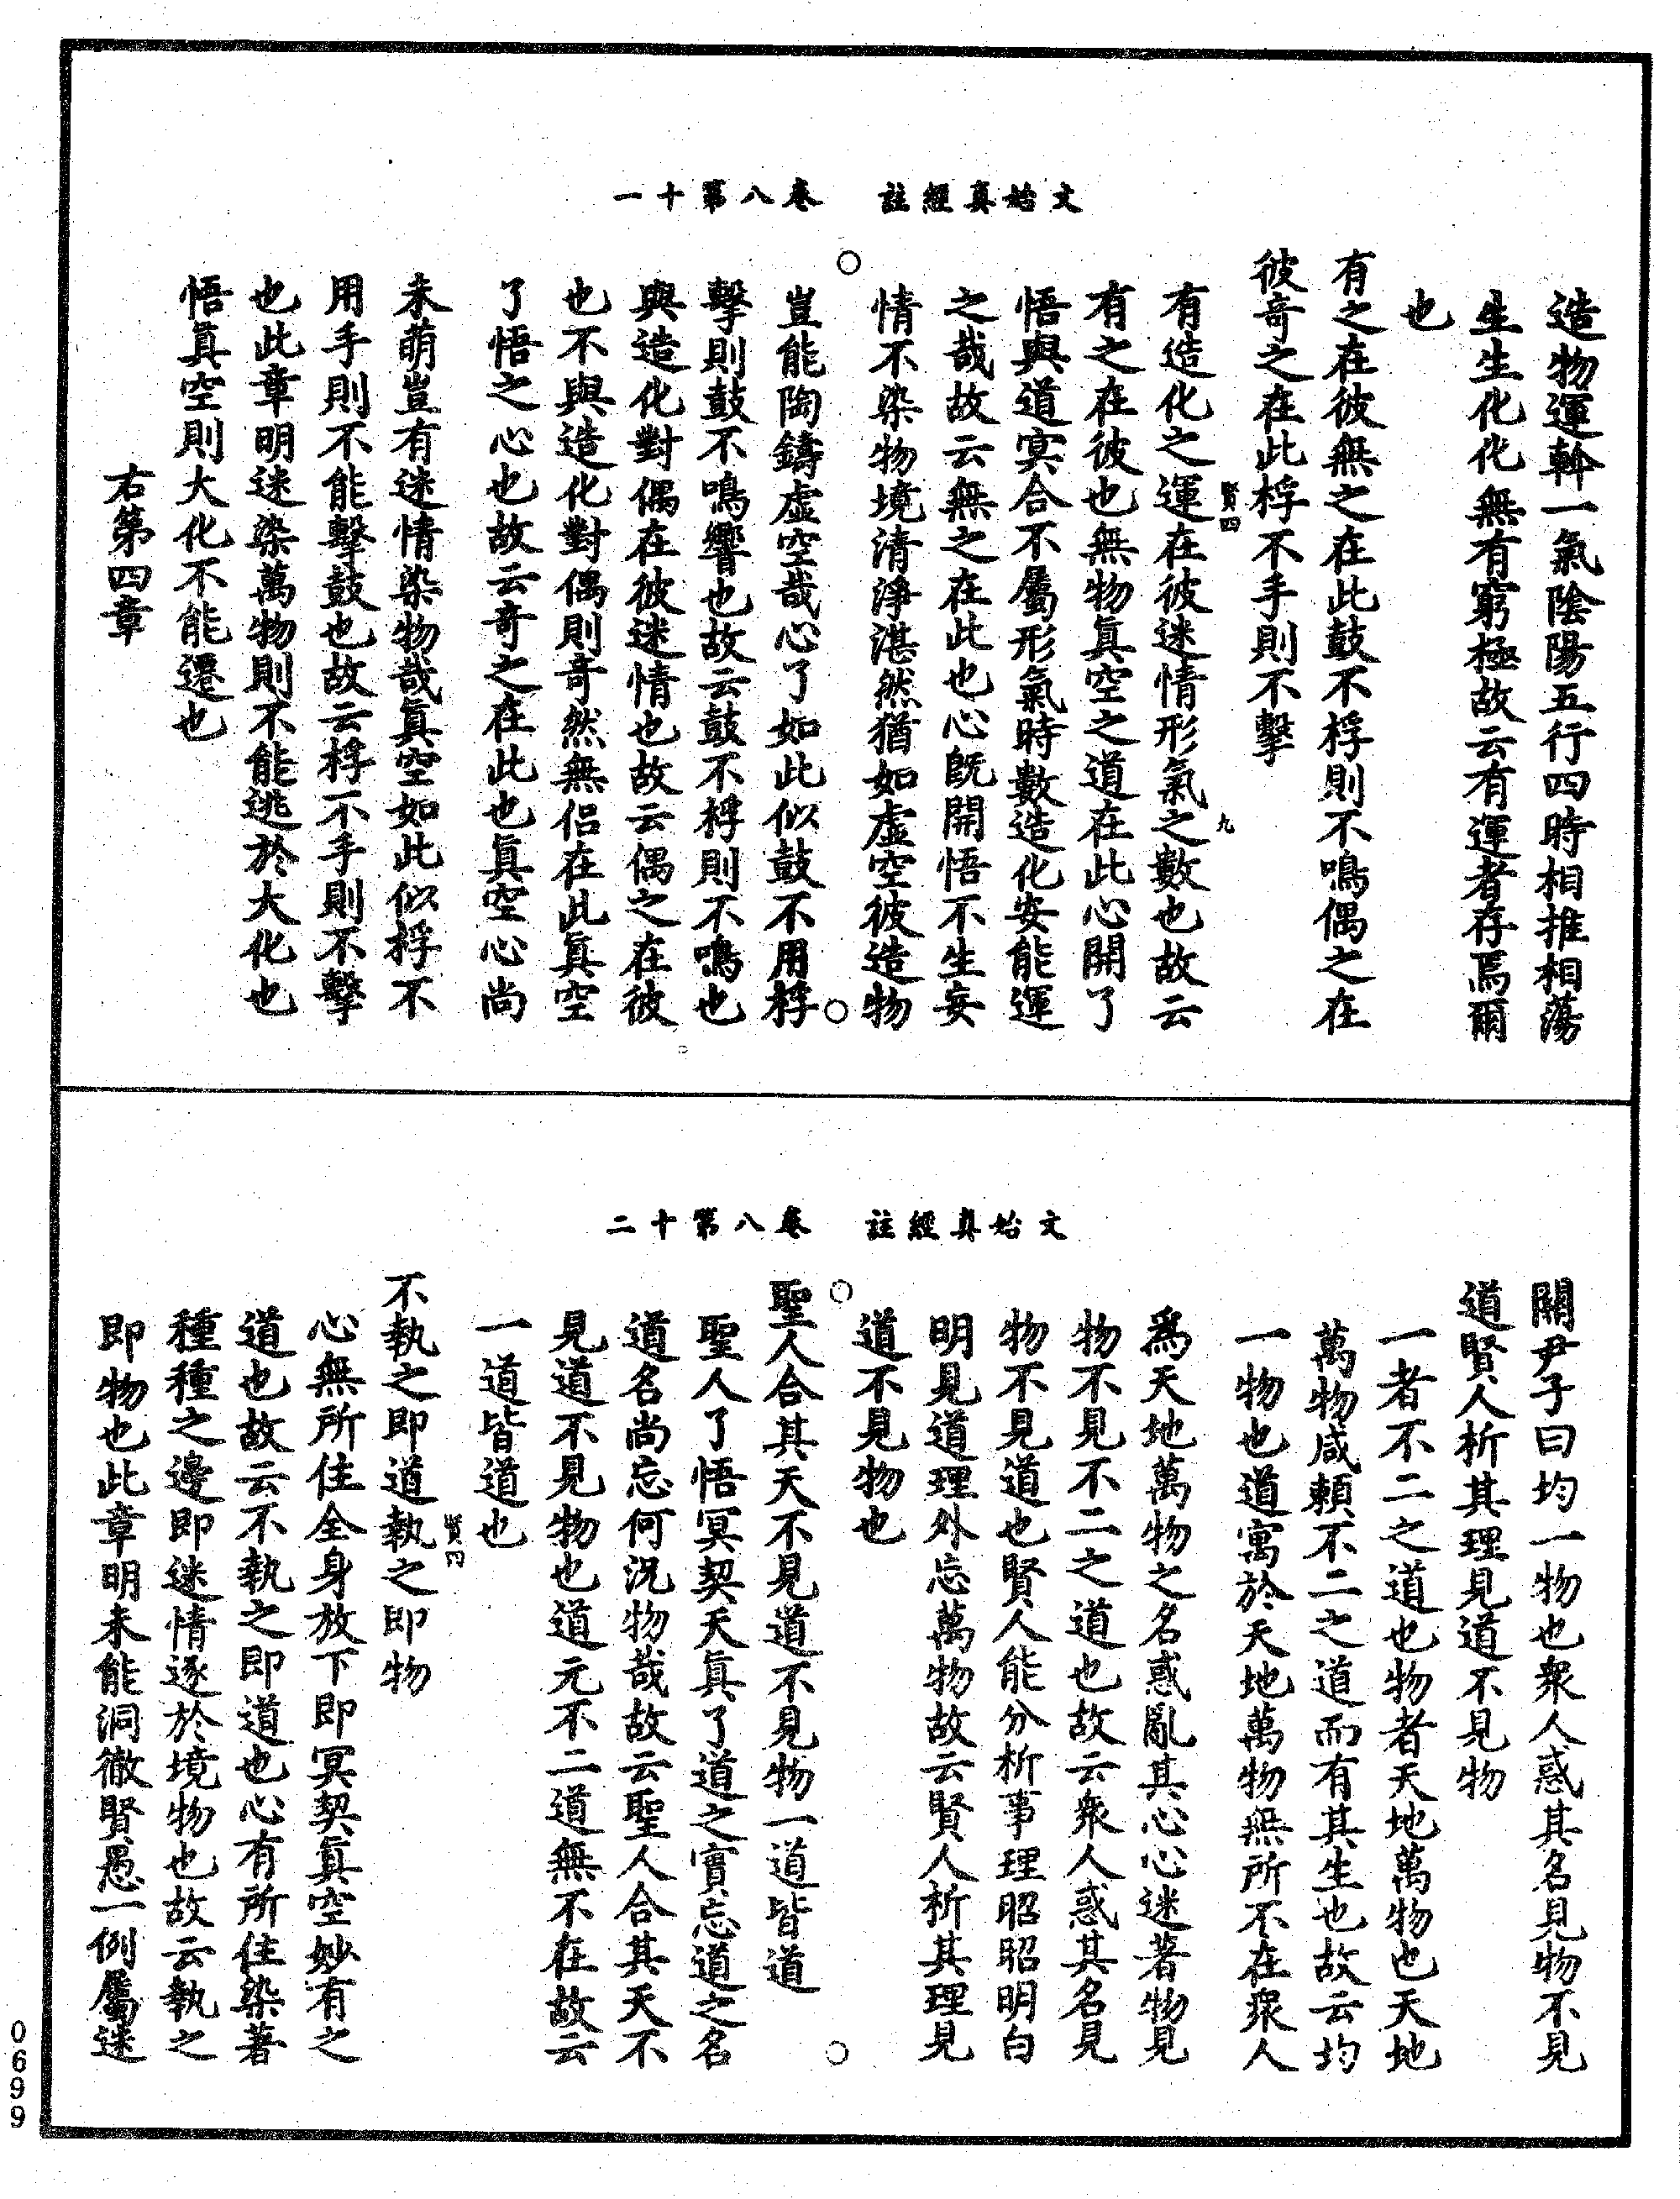 文始真經註　卷八第十一
造物運斡一氣陰陽五行四時相推相蕩
生生化化無有窮極故云有運者存焉爾
也
有之在彼無之在此鼓不桴則不鳴偶之在
彼奇之在此桴不手則不擊
賢四
九
有造化之運在彼迷情形氣之數也故云
有之在彼也無物真空之道在此心開了
悟與道冥合不屬形氣時數造化安能運
之哉故云無之在此也心既開悟不生妄
情不染物境清淨湛然猶如虛空彼造物
豈能陶鑄虛空哉心了如此似鼓不用桴
擊則鼓不鳴響也故云鼓不桴則不鳴也
與造化對偶在彼迷情也故云偶之在彼
也不與造化對偶則奇然無侶在此真空
了悟之心也故云奇之在此也真空心尚
未萌豈有迷情染物哉真空如此似桴不
用手則不能擊鼓也故云桴不手則不擊
也此章明迷染萬物則不能逃於大化也
悟真空則大化不能遷也
右第四章
文始真經註　卷八第十二
關尹子曰均一物也衆人惑其名見物不見
道賢人析其理見道不見物
一者不二之道也物者天地萬物也天地
萬物咸賴不二之道而有其生也故云均
一物也道寓於天地萬物無所不在衆人
為天地萬物之名惑亂其心心迷著物見
物不見不二之道也故云衆人惑其名見
物不見道也賢人能分析事理昭昭明白
明見道理外忘萬物故云賢人析其理見
道不見物也
聖人合其天不見道不見物一道皆道
聖人了悟冥契天真了道之實忘道之名
道名尚忘何況物哉故云聖人合其天不
見道不見物也道元不二道無不在故云
一道皆道也
賢四
不執之即道執之即物
心無所住全身放下即冥契真空妙有之
道也故云不執之即道也心有所住染著
種種之邊即迷情逐於境物也故云執之
即物也此章明未能洞徹賢愚一例屬迷
0699